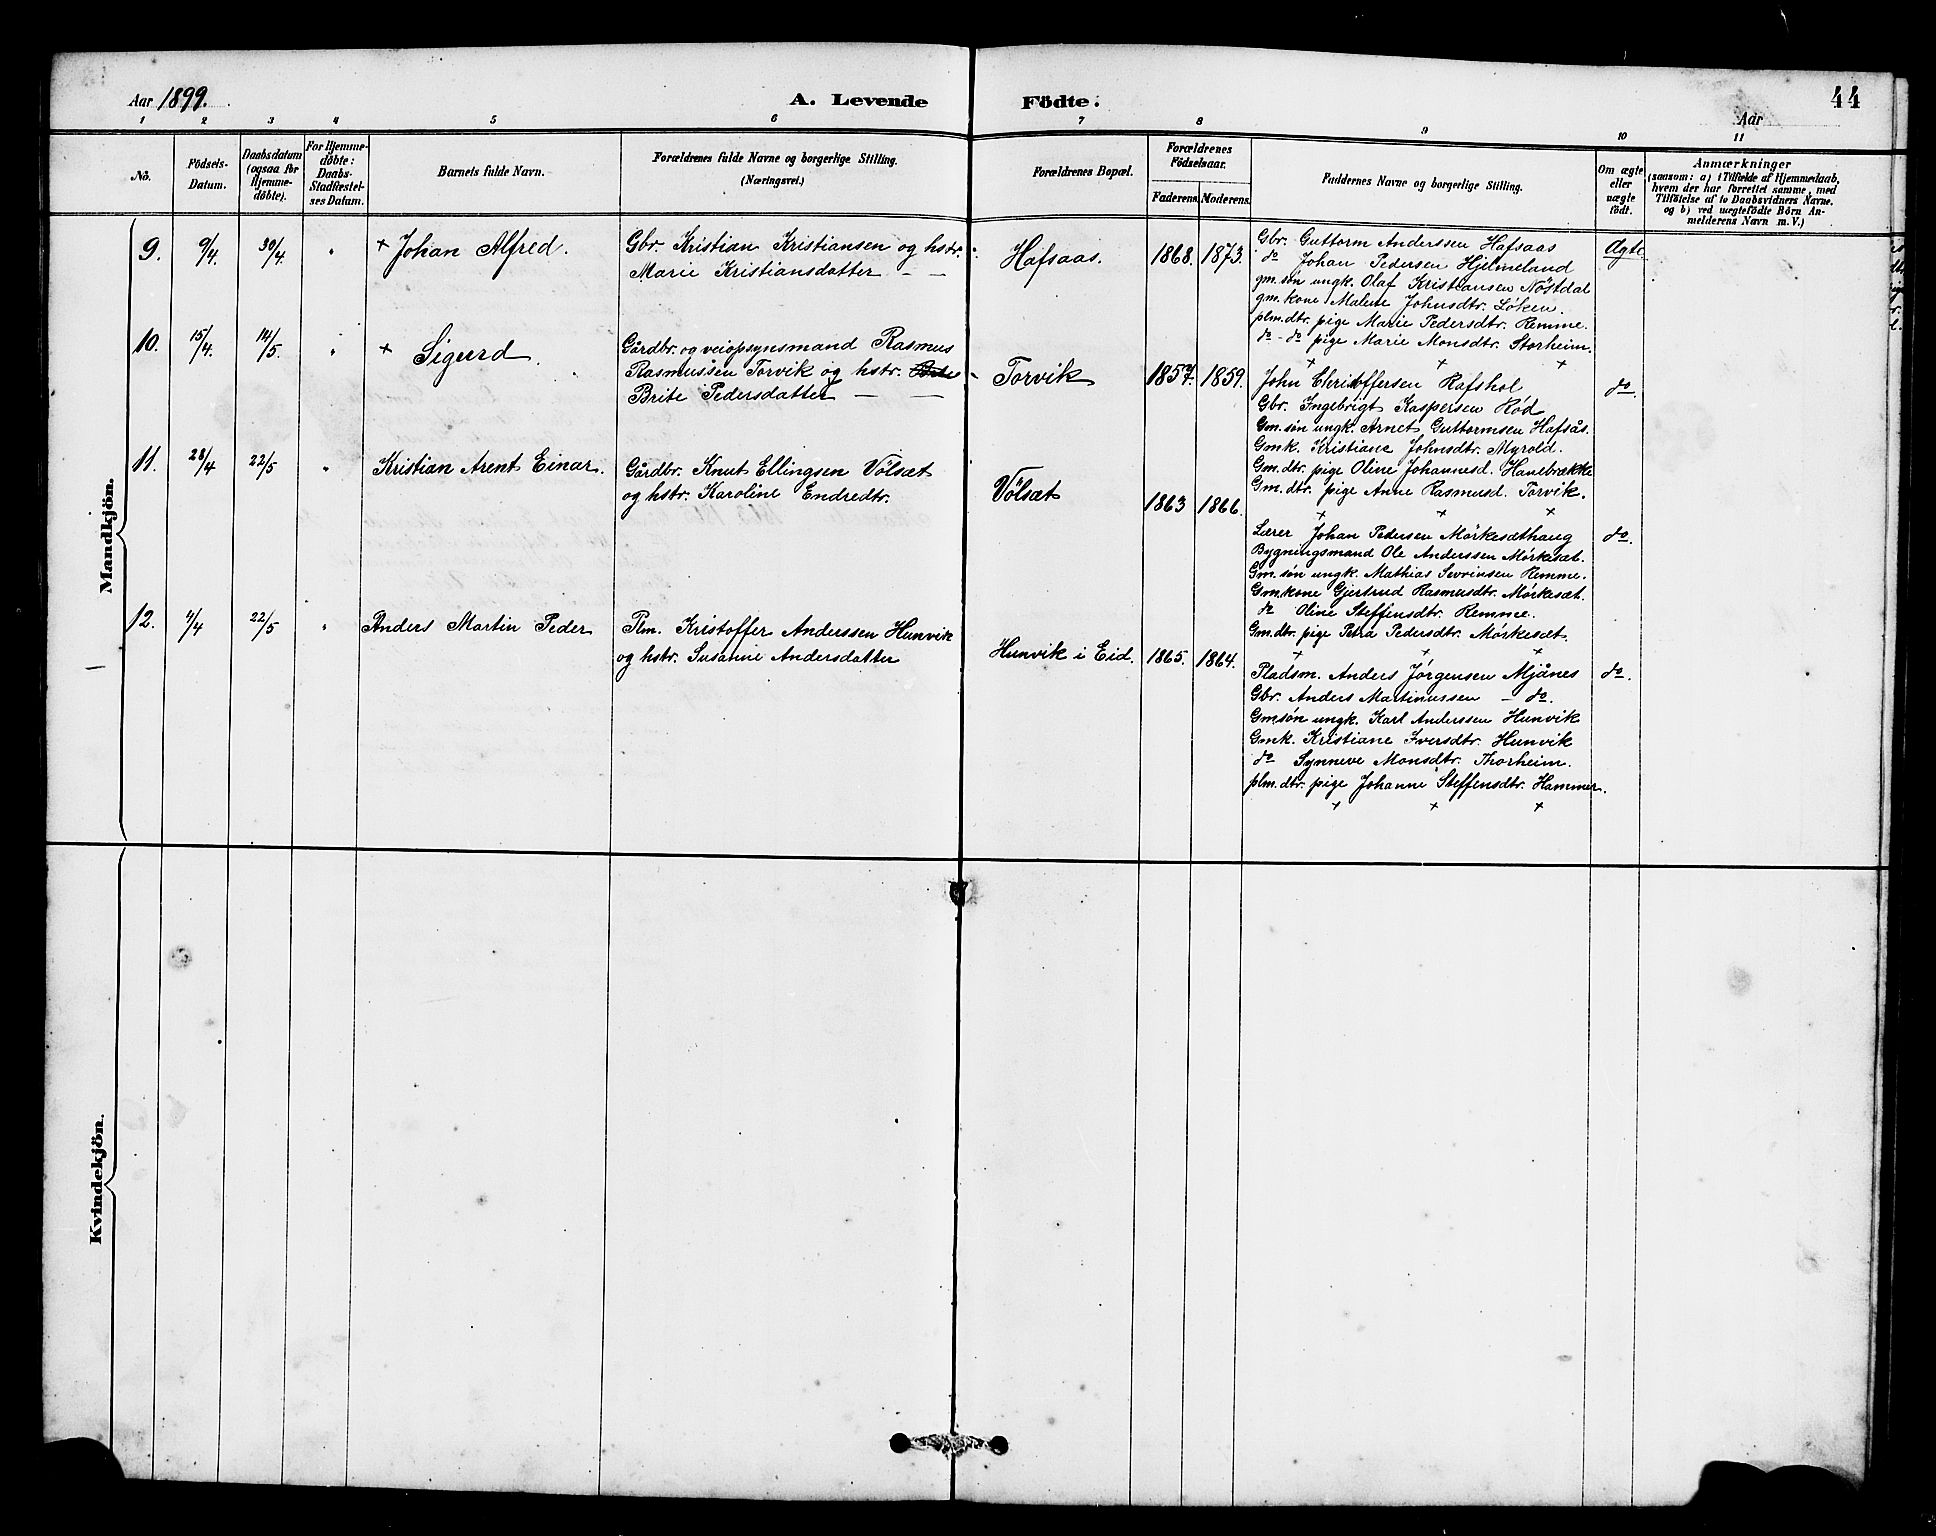 Aar 1899.
A. Levende Födte.
44
Aar
1 2 3 4 5 6 7 8 9 10 11
No.
Födsels-Datum.
Daabsdatum (ogsaa for Hjemme-döbte).
For Hjemme-döbte: Daabs-Stadfæstel-ses Datum.
Barnets fulde Navn.
Forældrenes fulde Navne og borgerlige Stilling.
(Næringsvei.)
Forældrenes Bopæl.
Forældrenes Födselsaar.
Faderens. Moderens.
Faddernes Navne og borgerlige Stilling.
Om ægte eller uægte födt.
Anmærkninger
(saasom: a) i Tilfælde af Hjemmedaab, hvem der har forrettet samme, med Tilföielse af to Daabsvidners Navne. og b) ved uægtefödte Börn An-melderens Navn m. V.)
Mandkjön.
9. 9/4. 30/4. " + Johan Alfred.
Gbr. Kristian Kristiansen og hstr.
Marie Kristiansdatter — —
Hafsaas. 1868. 1873.
Gbr. Guttorm Anderssen Hafsaas
do Johan Pedersen Hjelmeland
gm. søn ungk. Olaf Kristiansen Nöstdal
gm. kone Malene Johnsdtr. Löken.
plm. dtr. pige Marie Pedersdtr. Remme.
do - do pige Marie Monsdtr. Storheim.
+ + +
Ægte
10. 15/4. 14/5. " + Sigurd.
Gårdbr. og veiopsynsmand Rasmus
Rasmussen Torvik og hstr.
Brite Pedersdatter — —
Torvik 1857. 1859.
John Christoffersen Rafshol
Gbr. Ingebrigt Kaspersen Röd
Gm. søn ungk. Arnet Guttormsen Hafsås.
Gmk. Kristiane Johnsdtr. Myrold.
Gm. dtr. pige Oline Johannesd. Hanebrække
Gm. dtr. pige Anne Rasmusd. Torvik.
+ + +
do.
11. 28/4 22/5 " Kristian Arent Einar.
Gårdbr. Knut Ellingsen Völsæt
og hstr. Karoline Endredtr.
Völsæt 1863 1866.
Lærer Johan Pedersen Mörkesæthaug
Bygningsmand Ole Anderssen Mörkesæt.
Gm. søn ungk. Mathias Sevrinsen Remme.
Gm kone Gjertrud Rasmusdtr. Mörkesæt.
do Oline Steffensdtr. Remme.
Gm. dtr. pige Petra Pedersdtr. Mörkesæt.
+ + +
do.
12. 4/4 22/5 " Anders Martin Peder
Plm. Kristoffer Anderssen Hunvik
og hstr. Susanne Andersdatter
Hunvik i Eid. 1865. 1864.
Pladsm. Anders Jørgensen Mjånes
Gbr. Anders Martinussen — do.
Gmsøn ungk. Karl Anderssen Hunvik
Gmk. Kristiane Iversdtr. Hunvik
do Synneve Monsdtr. Thorheim.
plm. dtr. pige Johanne Steffensdtr. Hammer.
+ + +
do.
Kvindekjön.